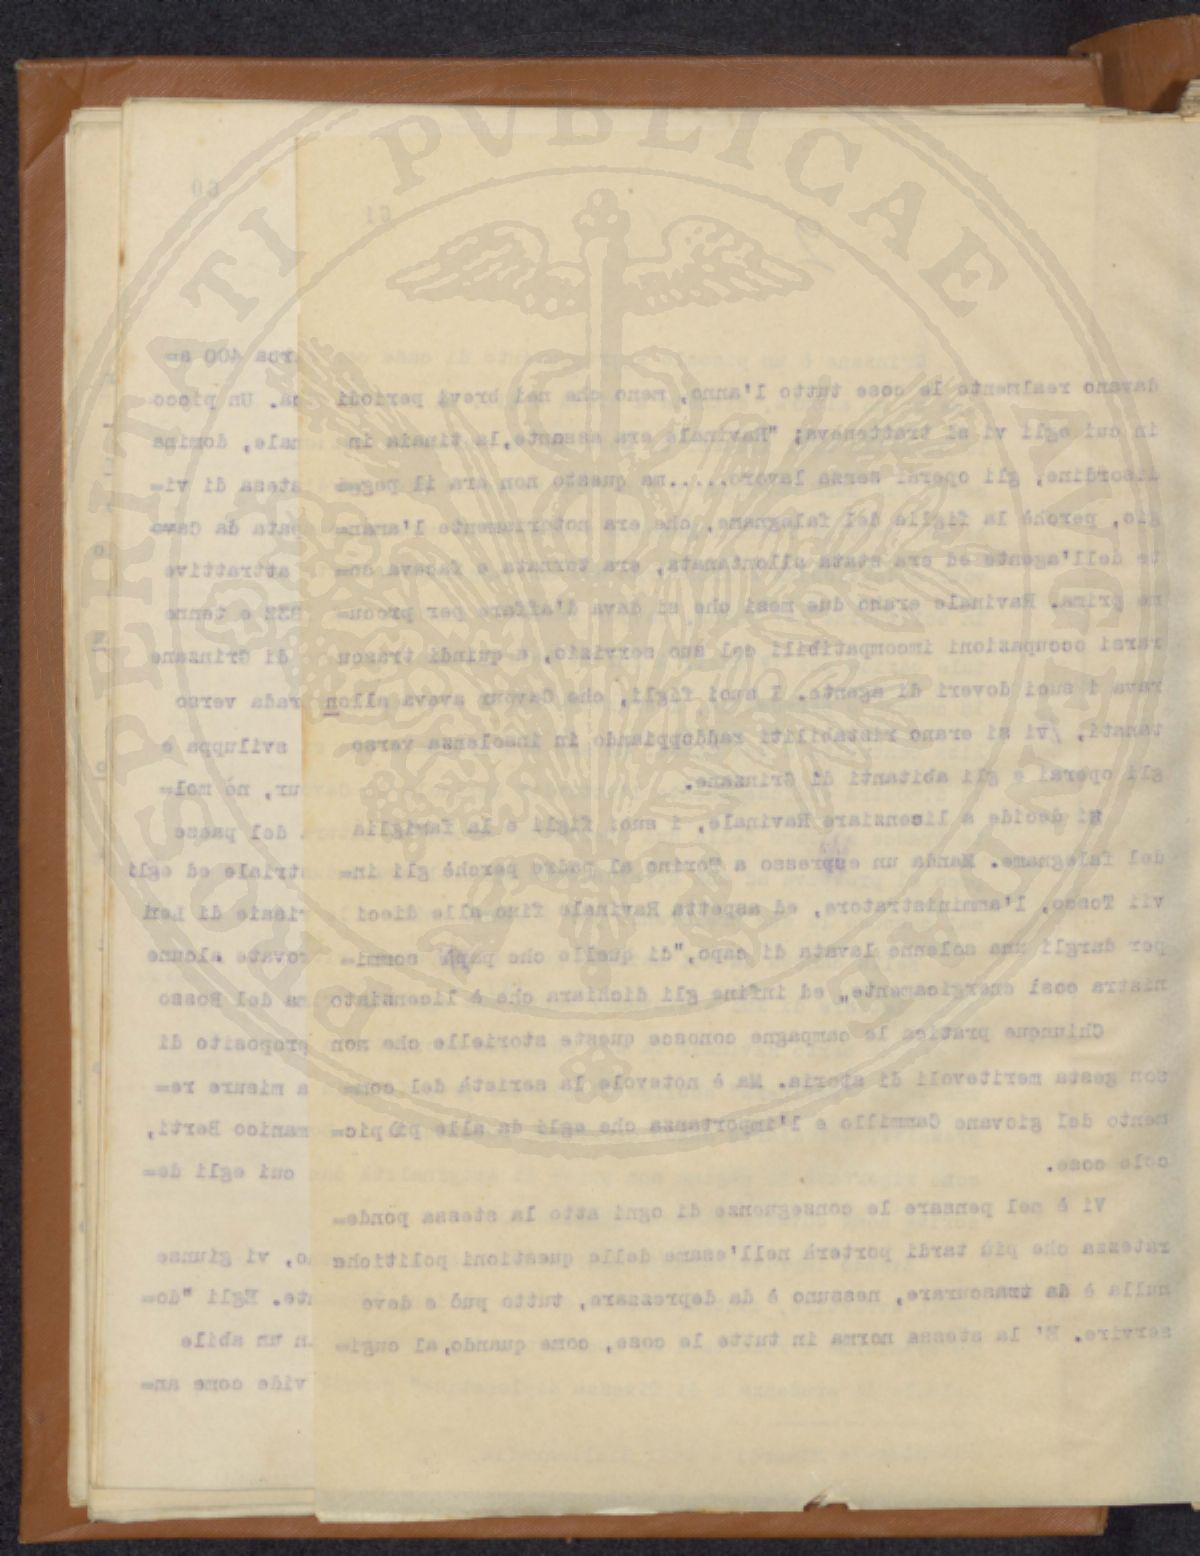 PROSPERITATI PVBLICAE AVGENDAE
13
davano realmente le cose tutto l'anno, meno che nei brevi periodi
in cui egli vi si tratteneva; "Ravinale era assente, la tinaia in
disordine, gli operai senza lavoro......ma questo non era il peg=
gio, perchè la figlia del falegname, che era notoriamente l'aman=
te dell'agente ed era stata allontanata, era tornata e faceva co=
me prima. Ravinale erano due mesi che si dava d'affare per procu=
rarsi occupazioni imcompatibili col suo servizio, e quindi trascu
rava i suoi doveri di agente. I suoi figli, che Cavour aveva allon
tanati, /vi si erano ristabiliti raddoppiando in insolenza verso
gli operai e gli abitanti di Grinzane.
Si decide a licenziare Ravinale, i suoi figli e la famiglia
del falegname. Manda un espresso a Torino al padre perchè gli in=
vii Tosco, l'amministratore, ed aspetta Ravinale fino alle dieci
per dargli una solenne lavata di capo, "di quelle che papà sommi=
nistra così energicamente" ed infine gli dichiara che è licenziato
Chiunque pratica le campagne conosce queste storielle che non
son gesta meritevoli di storia. Ma è notevole la serietà del com=
mento del giovane Cammillo e l'importanza che egli da alle più pic=
cole cose.
Vi è nel pensare le conseguenze di ogni atto la stessa ponde=
ratezza che più tardi porterà nell'esame delle questioni politiche
nulla è da trascurare, nessuno è da deprezzare, tutto può e deve
servire. E' la stessa norma in tutte le cose, come quando, al cugi=
400 a=
Un picco
nale, domina
stesa di vi=
pata da Cavo
attrattive
832 e tenne
di Grinzane
rada verso
sviluppa e
ur, nò mol=
del paese
striale ed egli
risaie di Leri
rovate alcune
ma del Bosso
proposito di
a misure re=
manico Berti,
cui egli de=
no, vi giunse
te. Egli "do=
n un abile
vide come an=